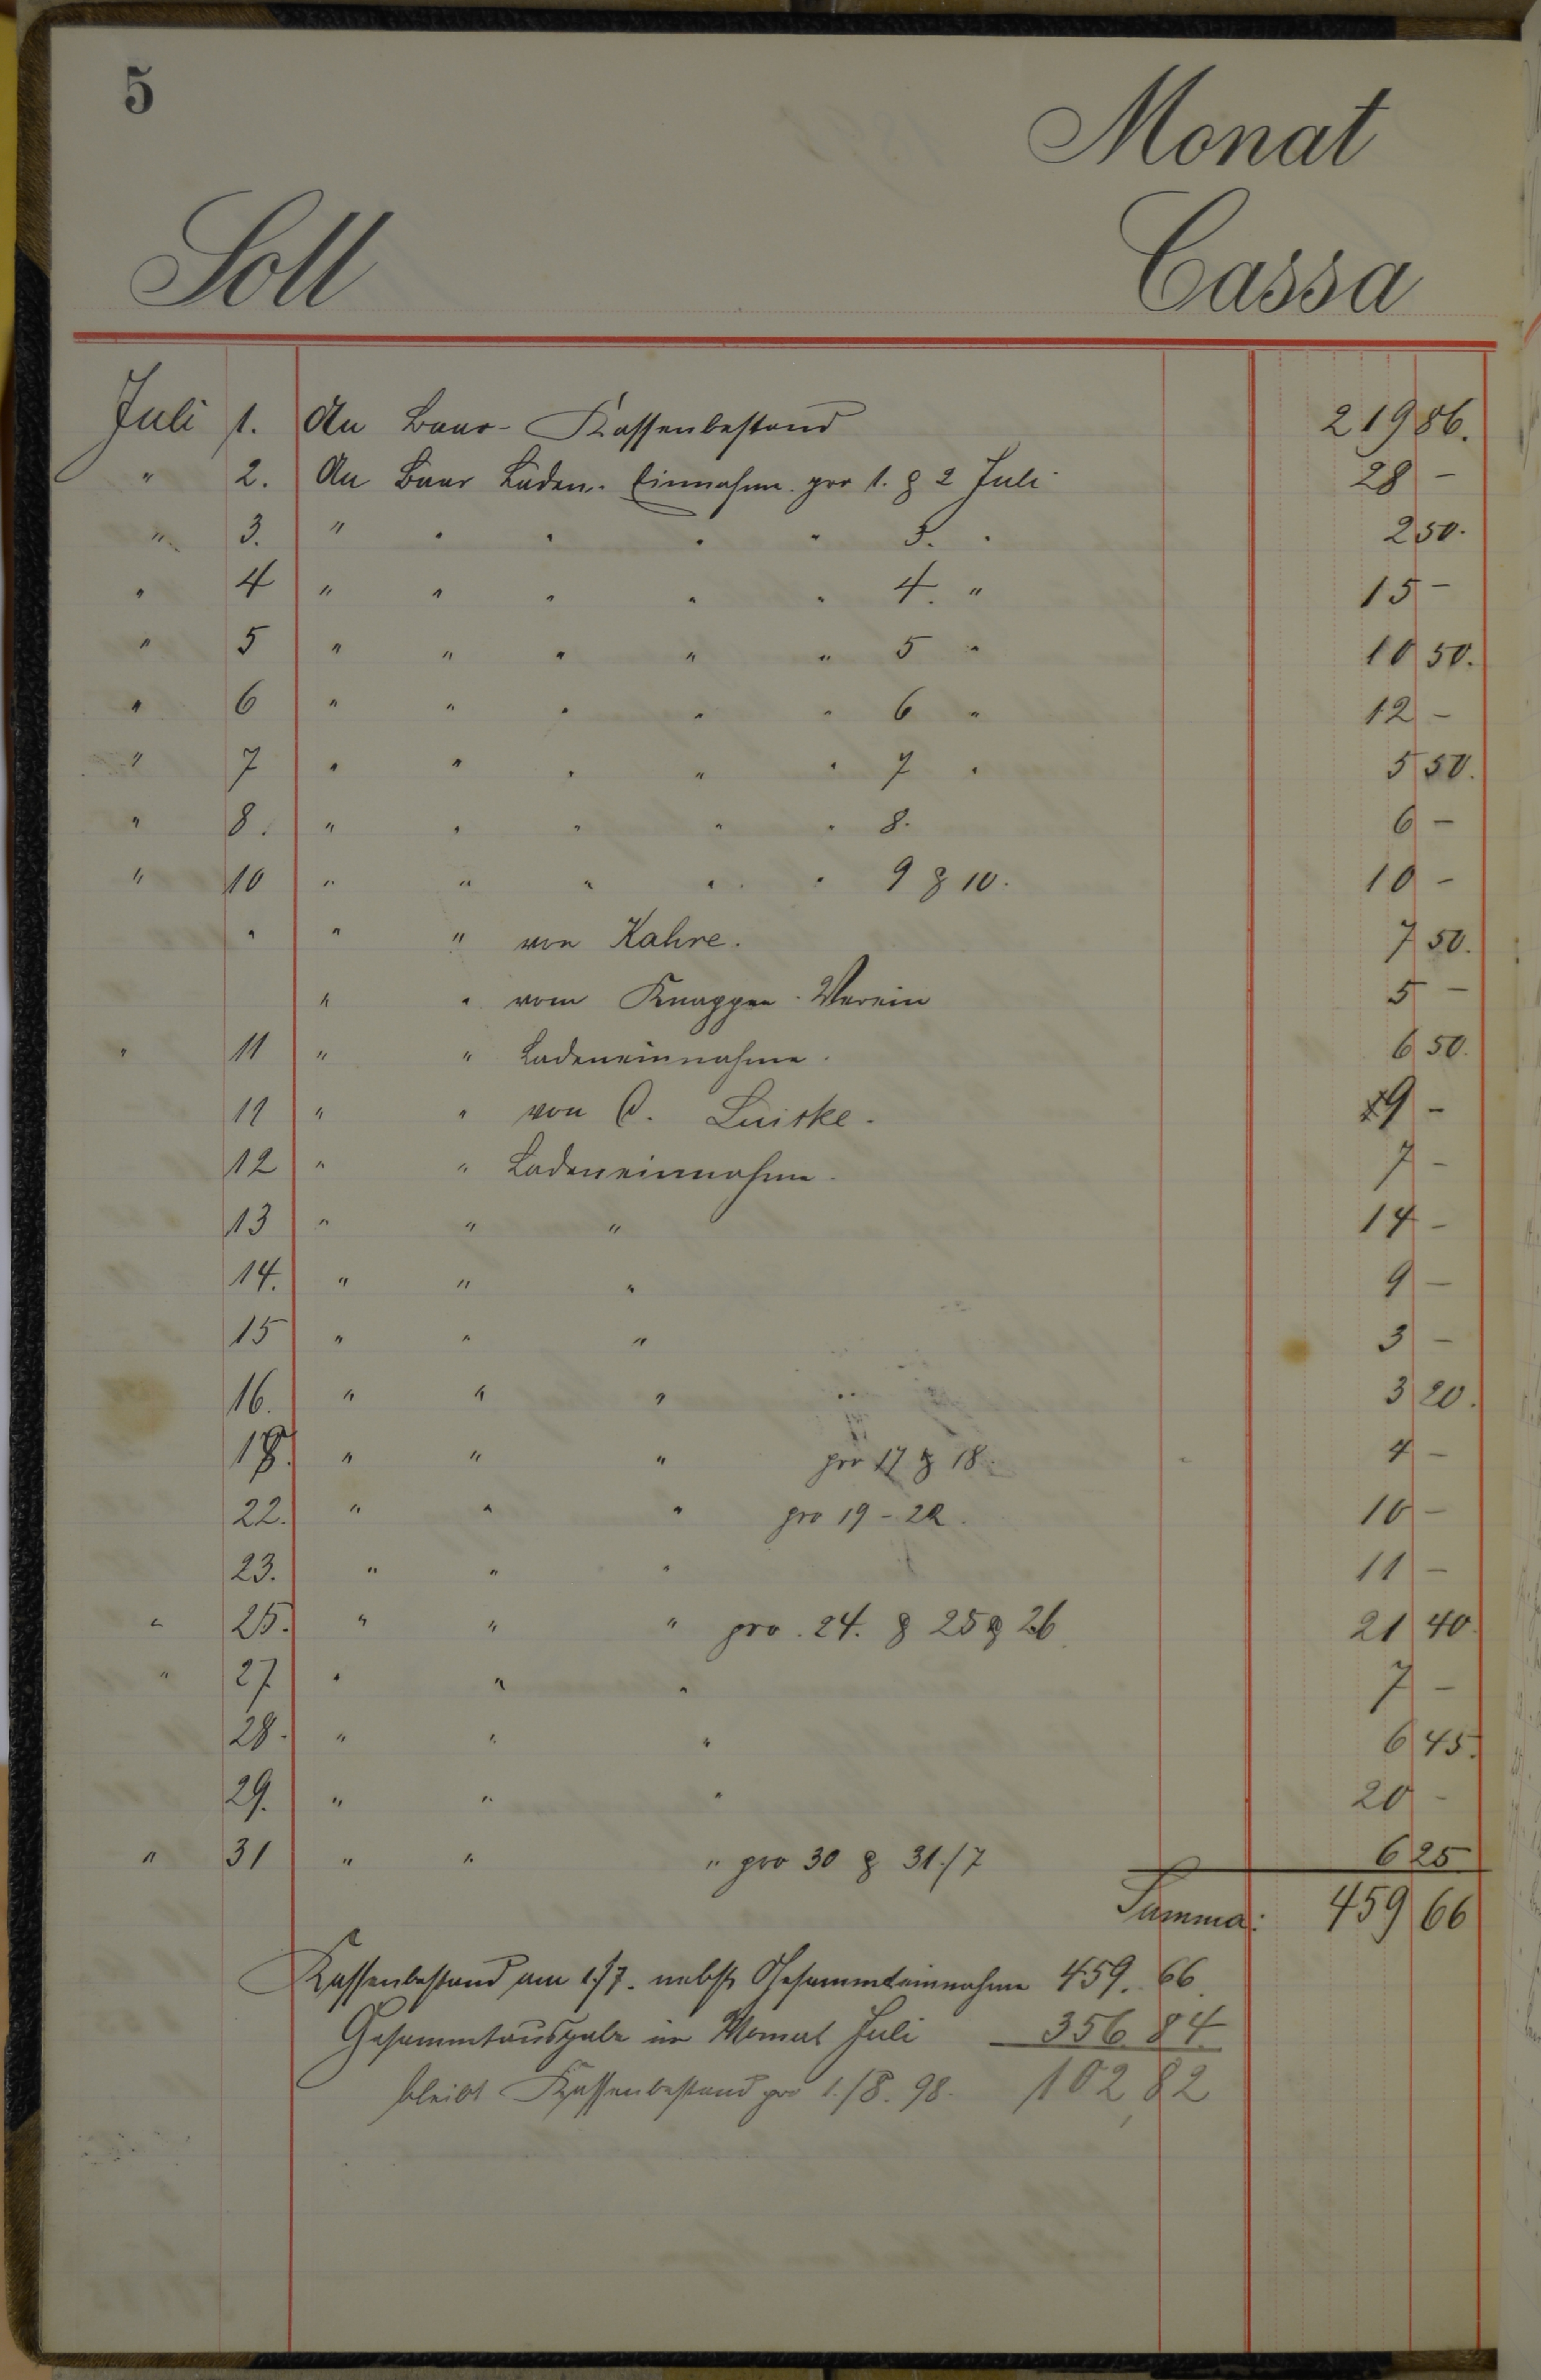 5
Monat
Soll Cassa
Juli 1. An Baar-Kassenbestand 219 86.
" 2. An Baar Laden-Einnahm. pro 1. & 2 Juli 28 -
" 3. " " " " " 3. " 2 50.
" 4 " " " " " 4. " 15 -
" 5 " " " " " 5 " 10 50.
" 6 " " " " " 6 " 12 -
" 7 " " " " " 7 " 5 50.
" 8. " " " " " 8. 6 -
" 10 " " " " " 9 & 10. 10 -
" " " von Kahre. 7 50.
" " vom Knappen-Verein 5 -
" 11 " " Ladeneinnahme. 6 50.
11 " " von C. Luiske. 19 -
12 " " Ladeneinnahme. 7 -
13 " " " 14 -
14. " " " 9 -
15 " " " 3 -
16. " " " 3 20.
18. " " " pro 17 & 18. 4 -
22. " " " pro 19 - 22. 10 -
23. " " " 11 -
" 25. " " " pro. 24. & 25 & 26 21 40.
" 27 " " " 7 -
28. " " " 6 45.
29. " " " 20 -
" 31 " " " pro 30 & 31./7 6 25
Summa: 459 66
Kassenbestand am 1./7. nebst Gesammteinnahme 459. 66.
Gesammtausgabe im Monat Juli 356 84.
bleibt Kassenbestand pro 1./8. 98. 102,82